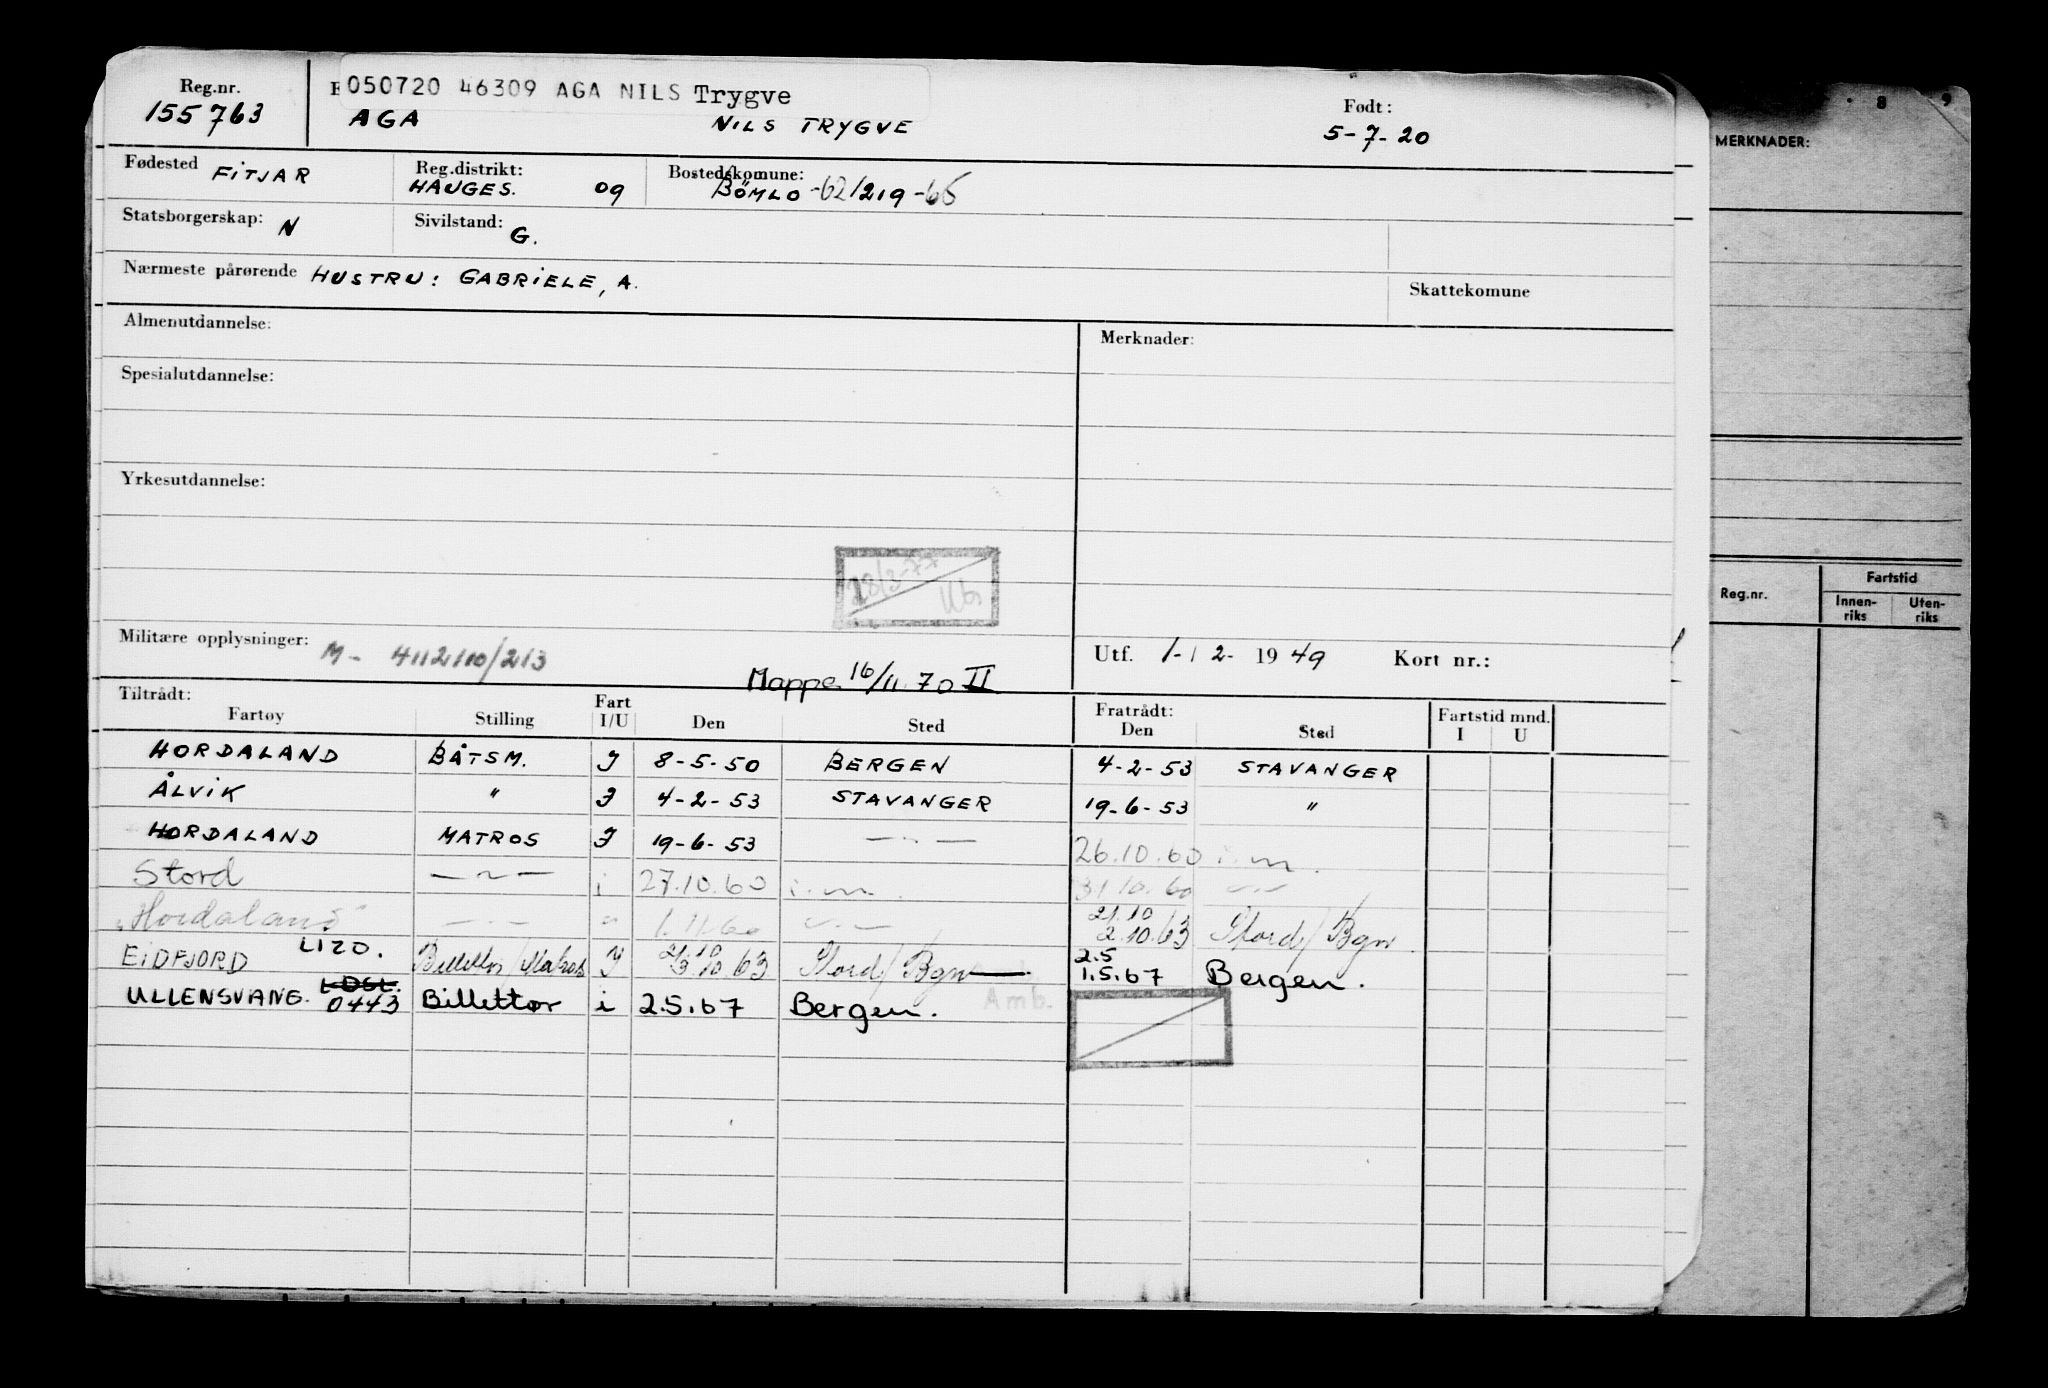 Reg.nr. 050720 46309 AGA NILS Trygve Født:
155763 AGA NILS TRYGVE 5-7-20
Fødested FITJAR Reg.distrikt: HAUGES. 09 Bostedskomune: BÖMLO -62/219-65
Statsborgerskap: N Sivilstand: G.
Nærmeste pårørende HUSTRU: GABRIELE, A. Skattekomune
Almenutdannelse: Merknader:
Spesialutdannelse:
Yrkesutdannelse:
28/3-77
Militære opplysninger: M- 4112/10/213 Utf. 1-12-1949 Kort nr.:
Mappe 16/11.70 II
Tiltrådt: Fart Fratrådt: Fartstid mnd.
Fartøy Stilling I/U Den Sted Den Sted I U
HORDALAND BÅTSM. I 8-5-50 BERGEN 4-2-53 STAVANGER
ÅLVIK " I 4-2-53 STAVANGER 19-6-53 "
HORDALAND MATROS I 19-6-53 —"— 26.10.60 i.m.
Stord —"— i 27.10.60 i.m. 31.10.60 —"—
"Hordaland" —"— " 1.11.60 —"— 21.10 2.10.63 Stord/Bgn
EIDFJORD LIZO. Billettør/Matros I 10.63 Stord/Bgn 2.5 1.5.67 Bergen.
ULLENSVANG. LDSL. 0443 Billettør i 2.5.67 Bergen. Amb.
8 9
MERKNADER:
Reg.nr. Fartstid
Innen-riks Uten-riks